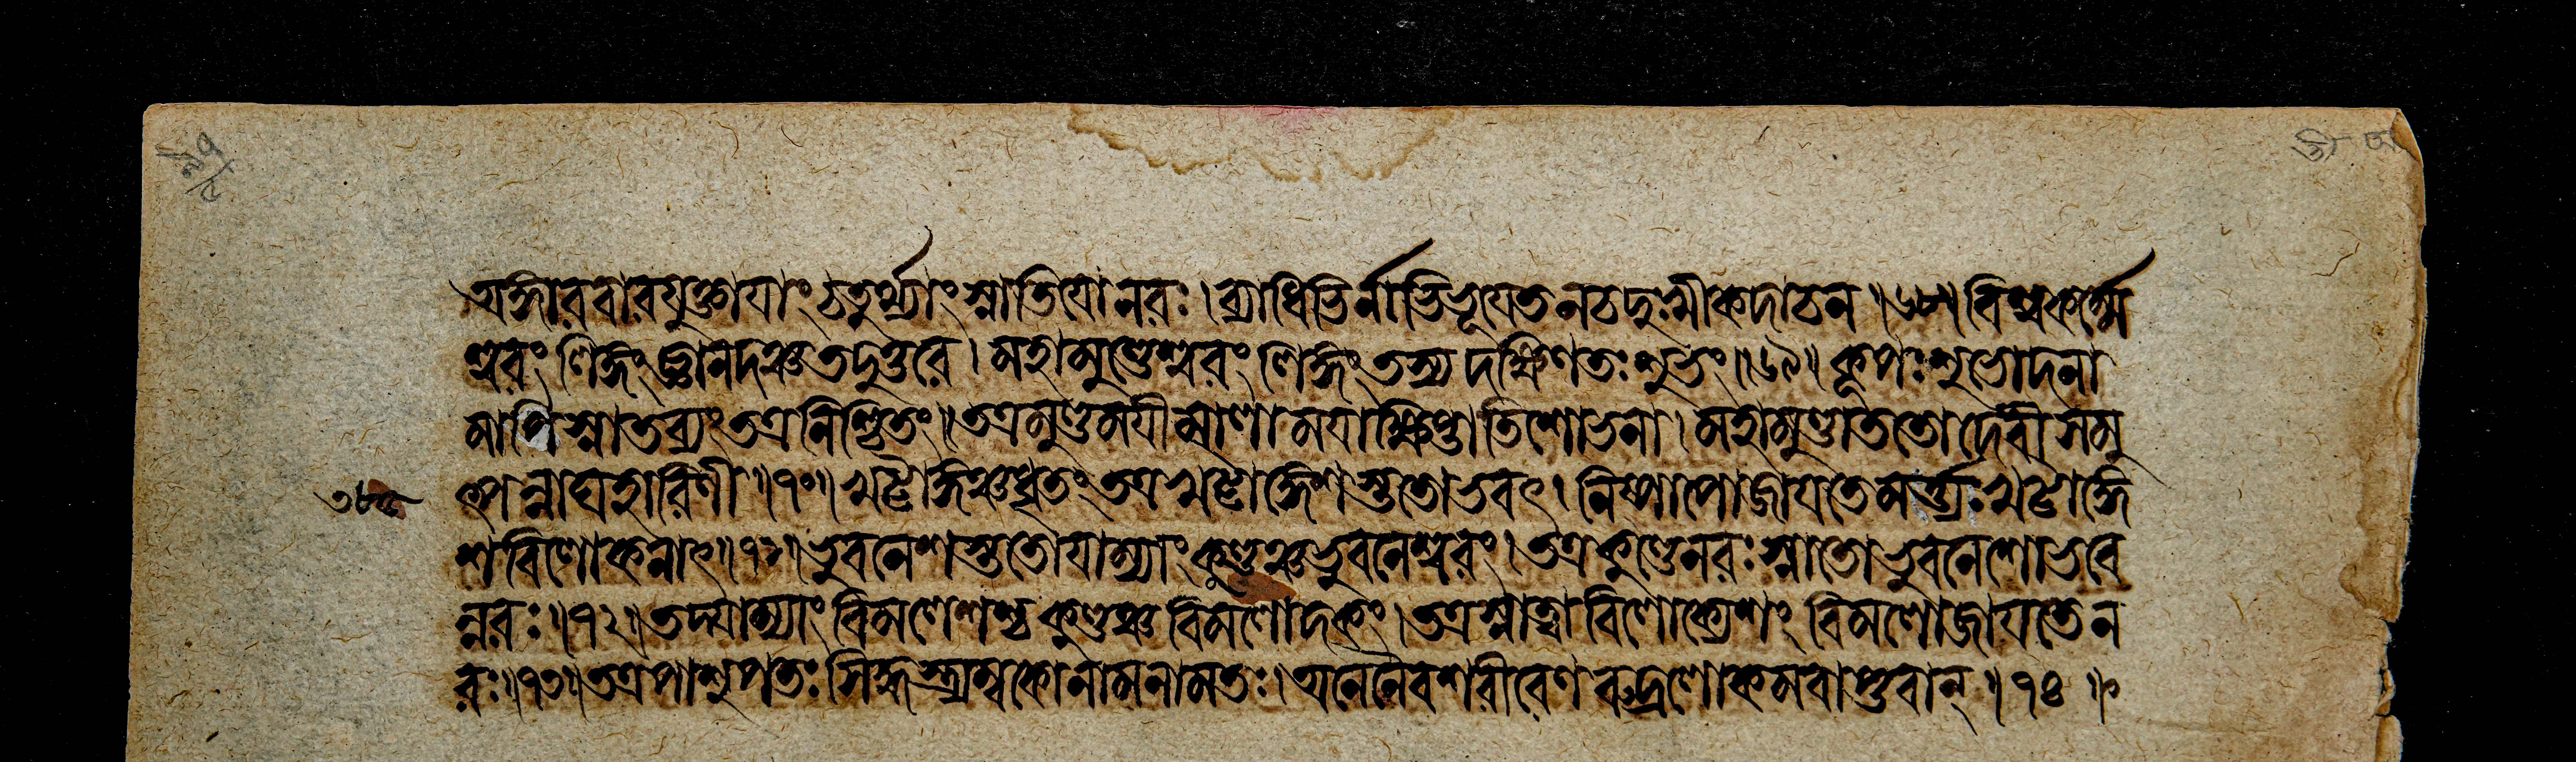 অঙ্গারবারযুক্তাযাং চতুর্থ্যাং স্নাতিযোনরঃ। ব্যাধিভির্নাভিভূযেতনচদুঃখীকদাচন॥৬৮॥ বিশ্বকর্ম্মে
শ্বরং লিঙ্গং জ্ঞানদঞ্চতদুত্তরে। মহামুণ্ডেশ্বরং লিঙ্গং তস্য দক্ষিণতঃ শুভং॥৬৯॥ কূপঃ শুভোদনা
মাপিস্নাতব্যং তত্রনিশ্চিতং॥ তত্রমুণ্ডমযীমালা মযাক্ষিপ্তাতিশোভনা। মহামুণ্ডাততোদেবীসমু
ৎপন্নাঘহারিণী॥৭০॥ খট্বাঙ্গঞ্চধৃতং তত্রখট্বাঙ্গেশস্ততোভবৎ। নিষ্পাপোজাযতেমর্ত্ত্যঃ খট্বাঙ্গে
শবিলোকনাৎ॥৭১॥ ভুবনেশস্ততোযাম্যাং কুণ্ডঞ্চভুবনেশ্বরং। তত্রকুণ্ডেনরঃ স্নাতোভুবনেশোভবে
ন্নরঃ॥৭২॥ তদ্যাম্যাং বিমলেশশ্চ কুণ্ডঞ্চ বিমলোদকং। তত্রস্নাত্বাবিলোক্যেশং বিমলোজাযতেন
রঃ॥৭৩॥ তত্রপাশুপতঃ সিদ্ধস্ত্র্যম্বকোনামনামতঃ। অনেনৈবশরীরেণ রুদ্রলোকমবাপ্তবান্॥৭৪॥